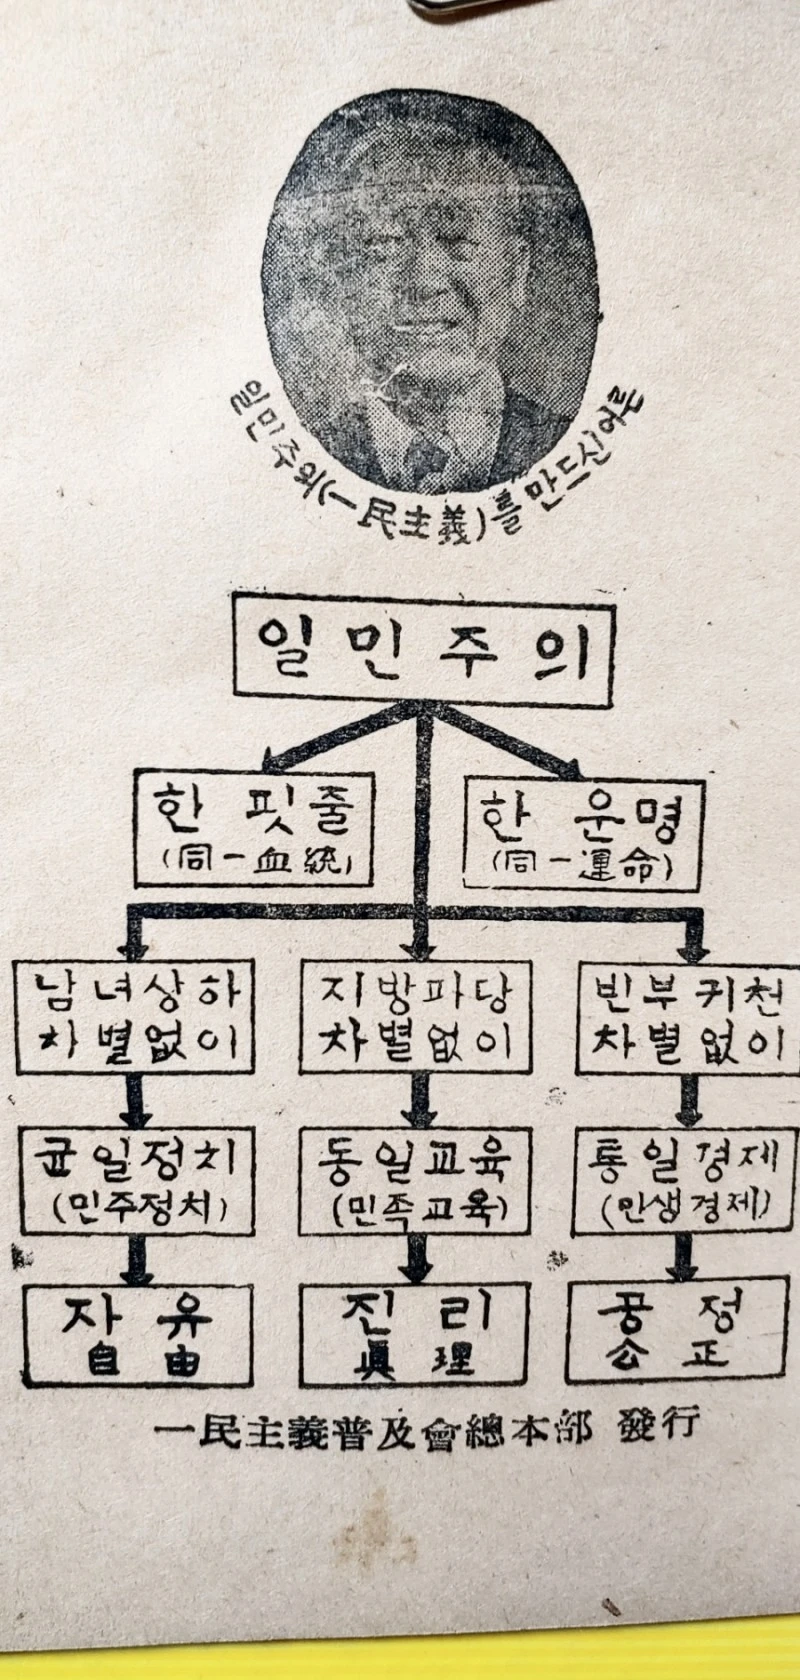 일민주의(一民主義)를 만드신 어른
일민주의
한 핏줄
(同一血統)
한 운명
(同一運命)
남녀상하
차별없이
지방파당
차별없이
빈부귀천
차별없이
균일정치
(민주정치)
동일교육
(민족교육)
통일경제
(민생경제)
자유
自由
진리
眞理
공정
公正
一民主義普及會總本部 發行